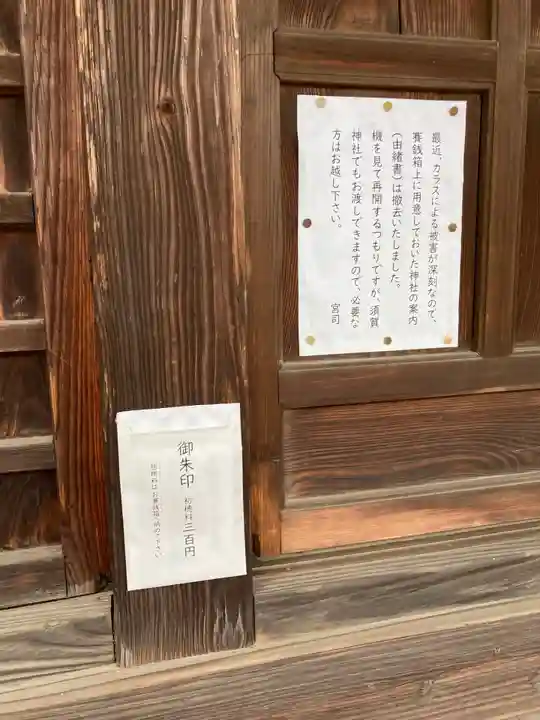 最近、カラスによる被害が深刻なので、
賽銭箱上に用意しておいた神社の案内
(由緒書)は撤去いたしました。
機を見て再開するつもりですが、須賀
神社でもお渡しできますので、必要な
方はお越し下さい。
宮司
御朱印 初穂料 三百円
初穂料はお賽銭箱へ納め下さい